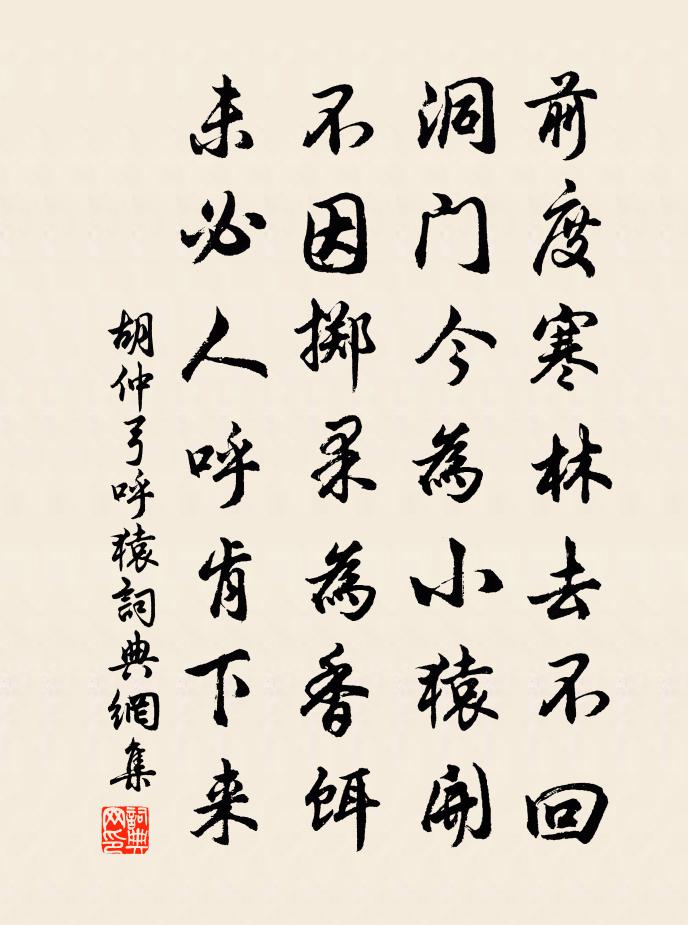 前度寒林去不回
洞门今為小猿開
不因擲果為香餌
未必人呼肯下来
胡仲弓呼猿詞典網集
詞典网印